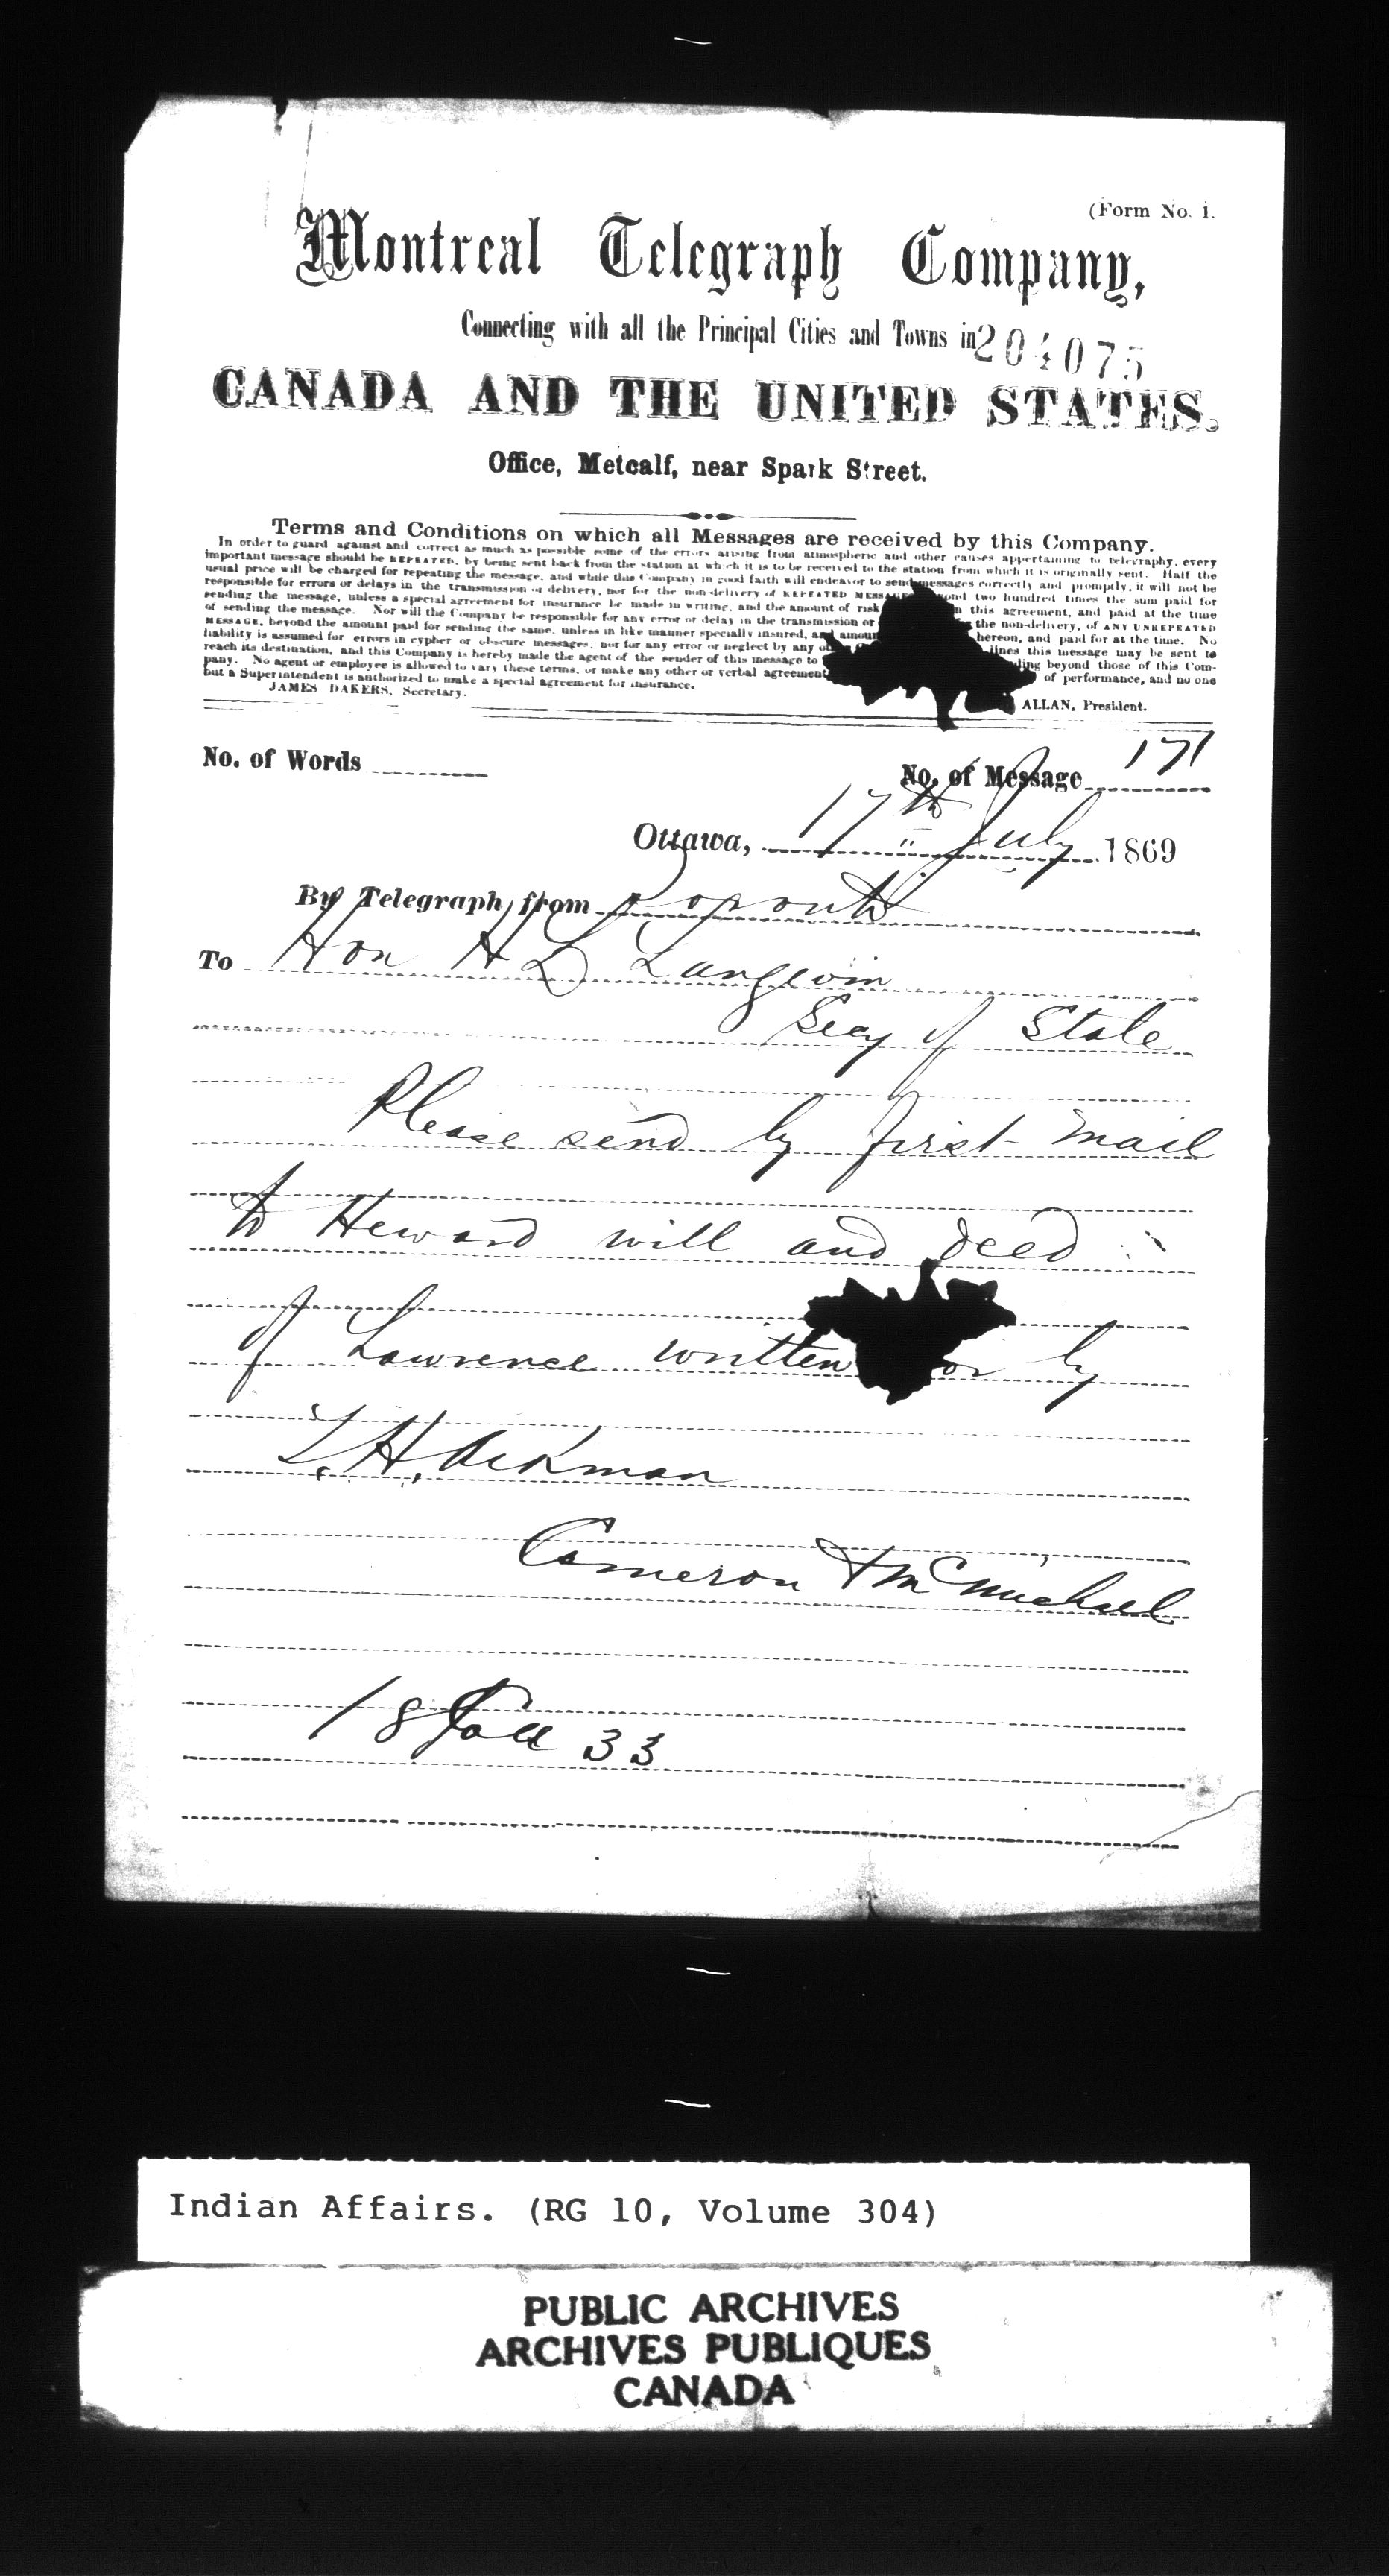 (Form No. 1.
Montreal Telegraph Company,
Connecting with all the Principal Cities and Towns in
204075
CANADA AND THE UNITED STATES.
Office, Metcalf, near Spark Street.
Terms and Conditions on which all Messages are received by this Company.
In order to guard against and correct as much as possible some of the errors arising from atmospheric and other causes appertaining to telegraphy, every
important message should be REPEATED, by being sent back from the station at which it is to be received to the station from which it is originally sent. Half the
usual price will be charged for repeating the message, and while this Company in good faith will endeavor to send messages correctly and promptly, it will not be
responsible for errors or delays in the transmission or delivery, nor for the non-delivery of REPEATED MESSAGES two hundred times the sum paid for
sending the message, unless a special agreement for insurance be made in writing, and the amount of risk this agreement, and paid at the time
of sending the message. Nor will the Company be responsible for any error or delay in the transmission or the non-delivery, of ANY UNREPEATED
MESSAGE, beyond the amount paid for sending the same, unless in like manner specially insured, and amount hereon, and paid for at the time. No
liability is assumed for errors in cypher or obscure messages; nor for any error or neglect by any lines this message may be sent to
reach its destination, and this Company is hereby made the agent of the sender of this message to beyond those of this Com-
pany. No agent or employee is allowed to vary these terms, or make any other or verbal agreement of performance, and no one
but a Superintendent is authorized to make a special agreement for insurance.
JAMES DAKERS, Secretary. ALLAN, President.
No. of Words No. of Message 171
Ottawa, 17th July 1869
By Telegraph from Toronto
To Hon H L Langevin
Secy of State
Please send by first mail
to Heward will and deed
of Lawrence written or by
L.H.
Cameron & McMichael
18 Coll 33
Indian Affairs. (RG 10, Volume 304)
PUBLIC ARCHIVES
ARCHIVES PUBLIQUES
CANADA